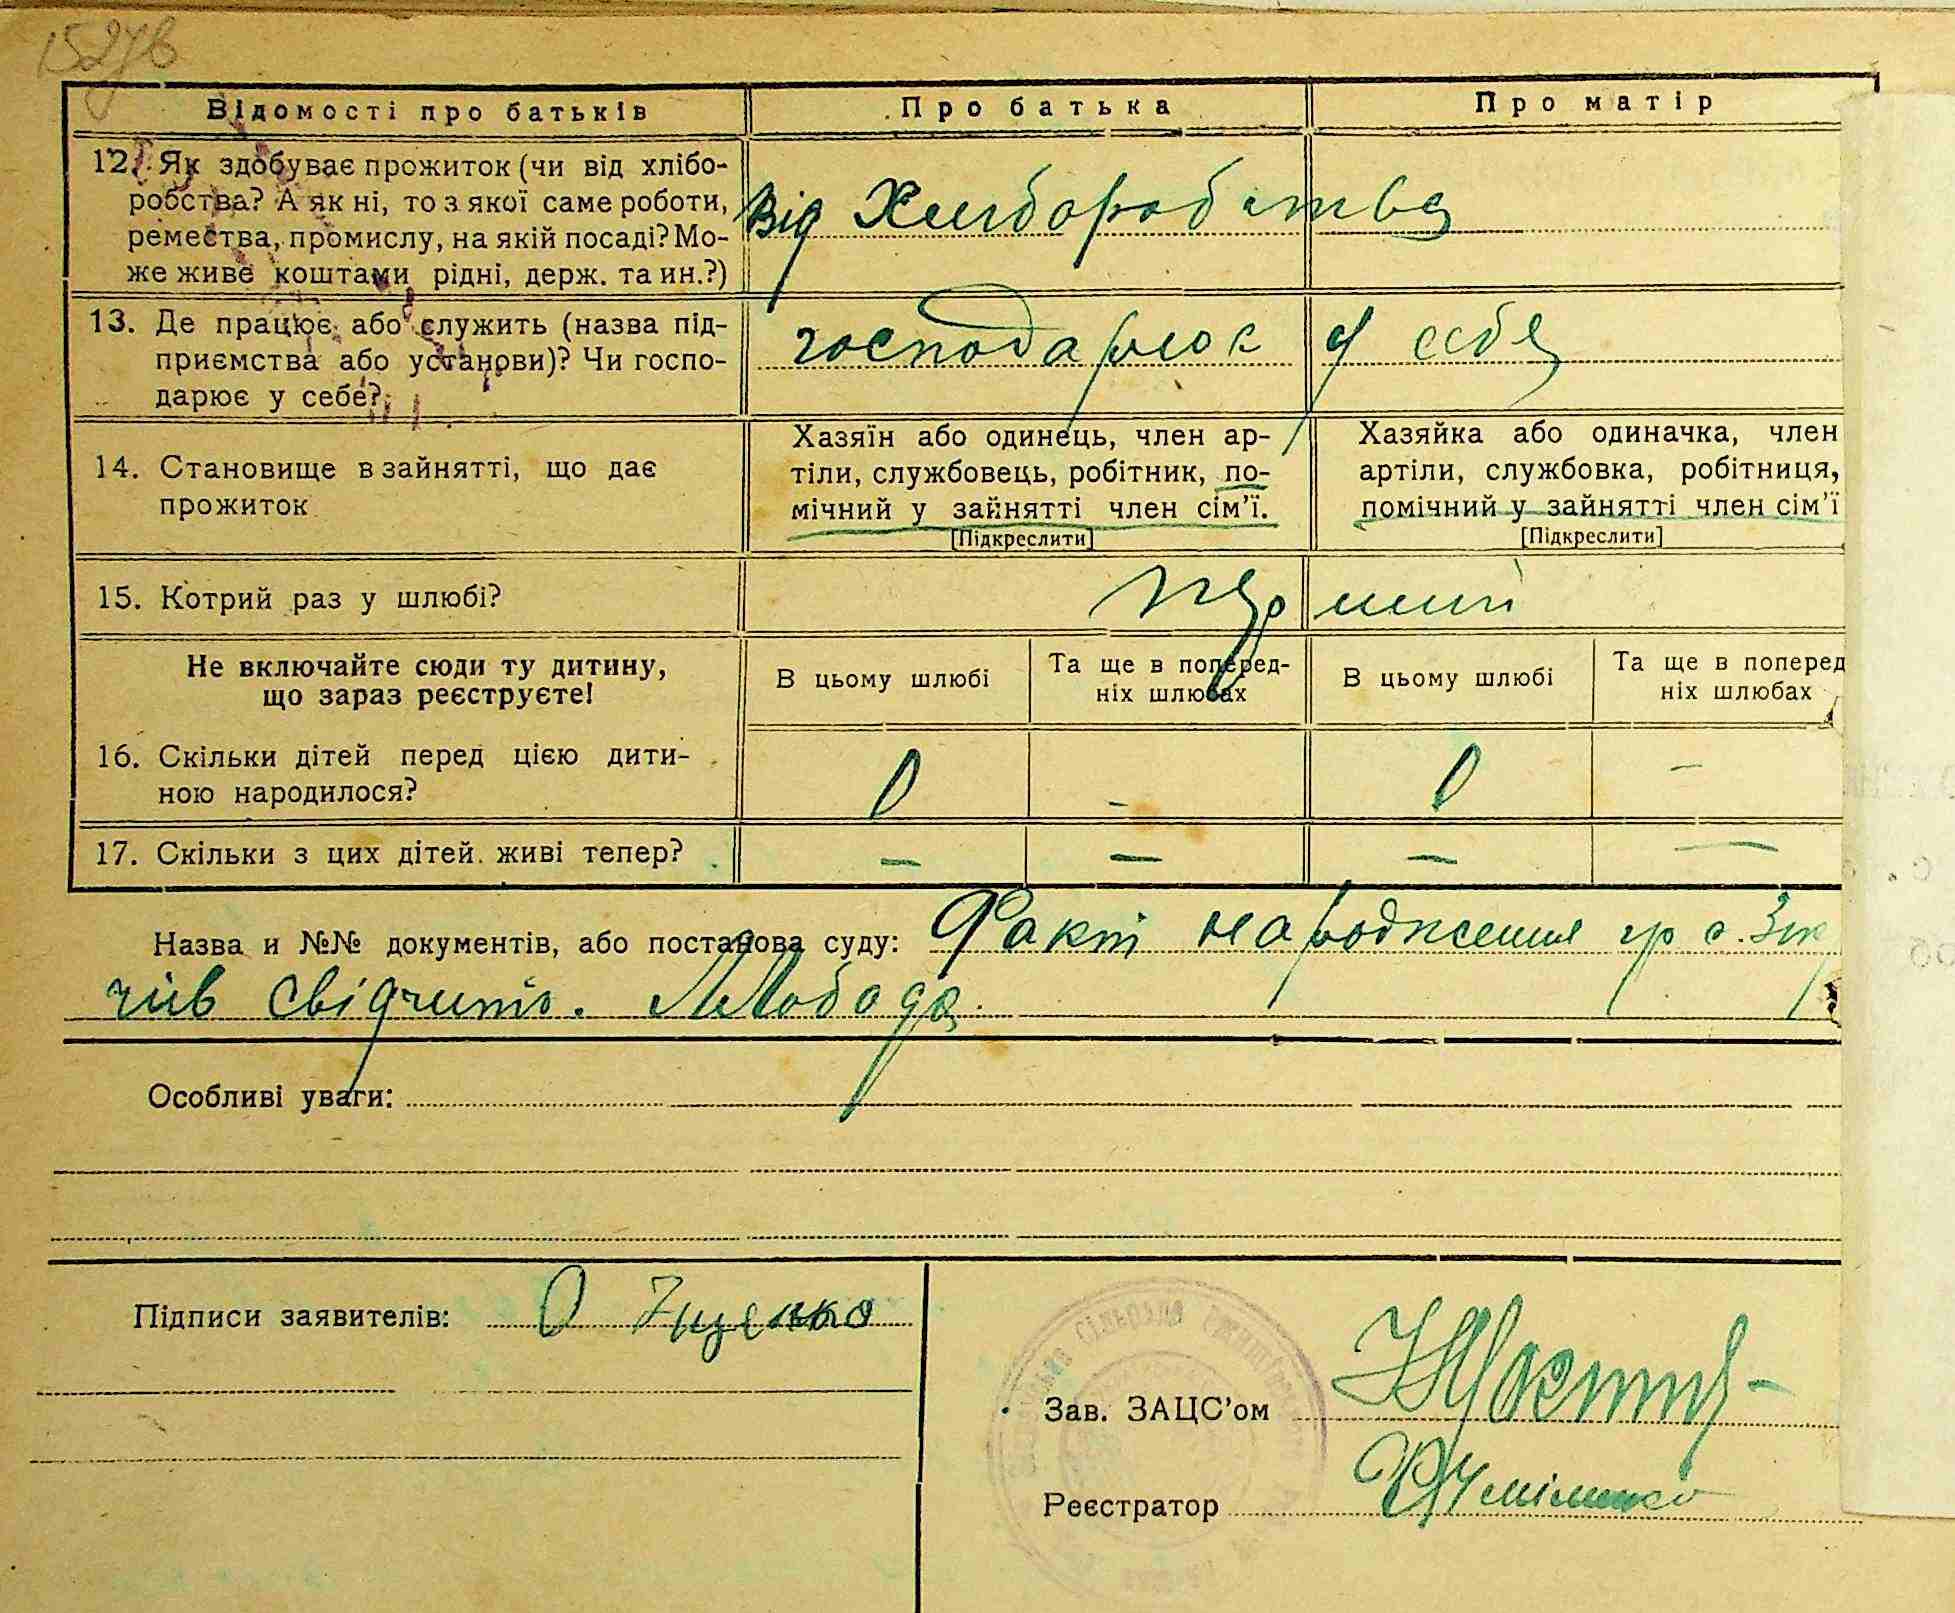 1527в
Відомості про батьків
Про батька
Про матір
12. Як здобуває прожиток (чи від хлібо-
робства? А як ні, то з якої саме роботи,
ремества, промислу, на якій посаді? Мо-
же живе коштами рідні, держ. та ин.?)
Від Хлиборобства
13. Де працює або служить (назва під-
приємства або установи)? Чи госпо-
дарює у себе?
господарює у себе
14. Становище в зайнятті, що дає
прожиток
Хазяїн або одинець, член ар-
тіли, службовець, робітник, по-
мічний у зайнятті член сім'ї.
[Підкреслити]
Хазяйка або одиначка, член
артіли, службовка, робітниця,
помічний у зайнятті член сім'ї
[Підкреслити]
15. Котрий раз у шлюбі?
перший
Не включайте сюди ту дитину,
що зараз реєструєте!
В цьому шлюбі
Та ще в поперед-
ніх шлюбах
В цьому шлюбі
Та ще в поперед
ніх шлюбах
16. Скільки дітей перед цією дити-
ною народилося?
0 - 0 -
17. Скільки з цих дітей живі тепер?
- - - -
Назва и №№ документів, або постанова суду: Факт народження гр с.
чів свідчить. Лобода
Особливі уваги:
Підписи заявителів: О Іщенко
Зав. ЗАЦС'ом
Реєстратор